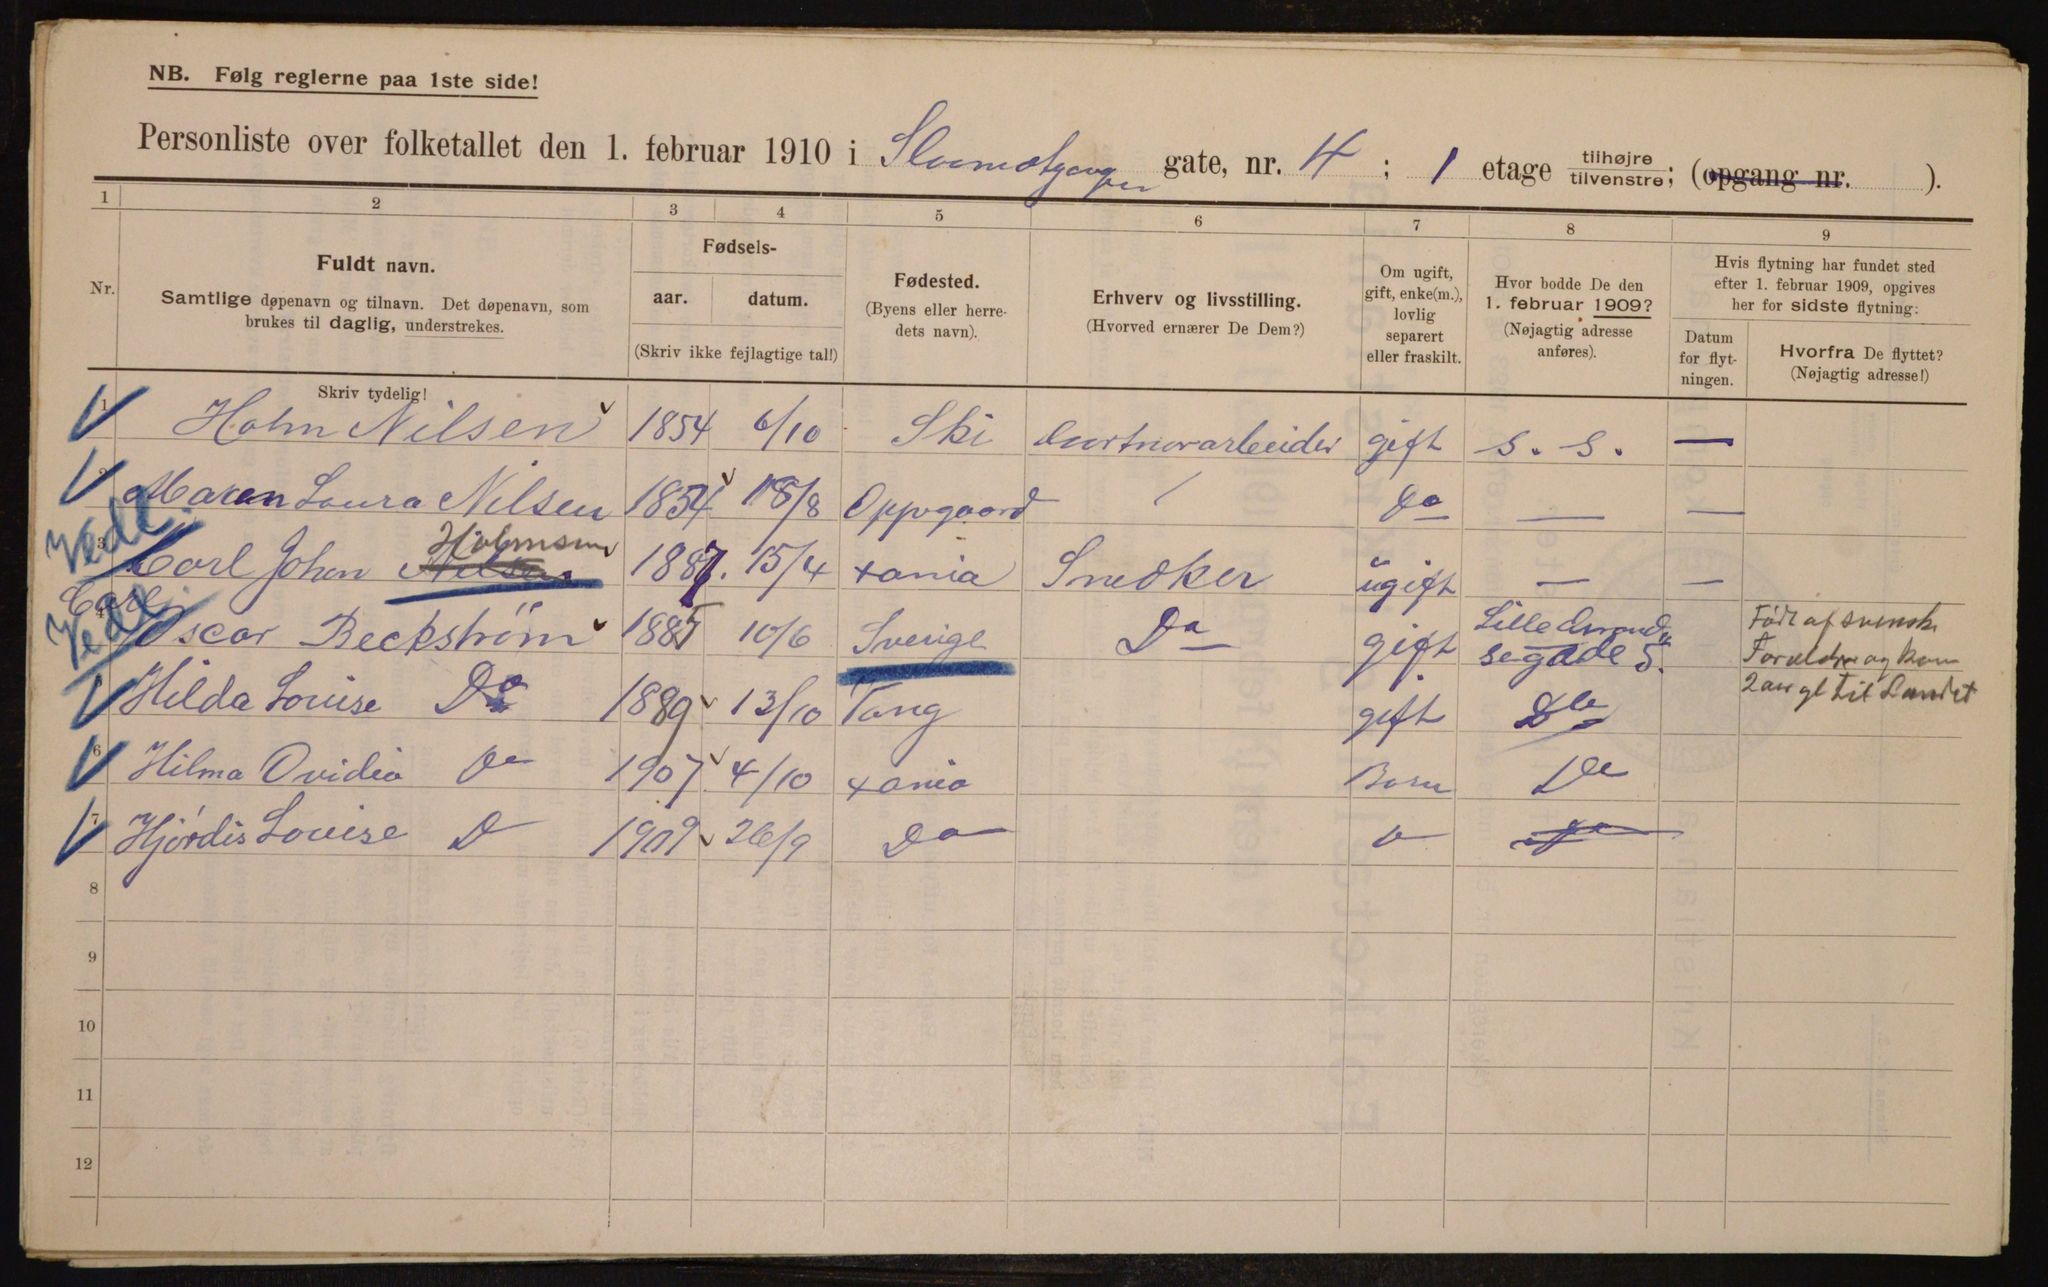 NB. Følg reglerne paa 1ste side!
Personliste over folketallet den 1. februar 1910 i gate, nr. 4 ; 1 etage tilhøjre tilvenstre; (opgang nr. ).
1 2 3 4 5 6 7 8 9
Nr.
Fuldt navn.
Samtlige døpenavn og tilnavn. Det døpenavn, som
brukes til daglig, understrekes.
Skriv tydelig!
Fødsels-
aar. datum.
(Skriv ikke fejlagtige tal!)
Fødested.
(Byens eller herre-
dets navn).
Erhverv og livsstilling.
(Hvorved ernærer De Dem?)
Om ugift,
gift, enke(m.),
lovlig
separert
eller fraskilt.
Hvor bodde De den
1. februar 1909?
(Nøjagtig adresse
anføres).
Hvis flytning har fundet sted
efter 1. februar 1909, opgives
her for sidste flytning:
Datum
for flyt-
ningen.
Hvorfra De flyttet?
(Nøjagtig adresse!)
1 Holm Nilsen 1854 6/10 Ski gift s. s. —
2 Maren Laura Nilsen 1854 18/8 Oppegaard / Do — —
Vedl.
3 Carl Johan Nilsen Holmsen 1887. 15/4 xania Snedker ugift — —
Carl
Vedl.
4 Oscar Beckstrøm 1885 10/6 Sverige Do gift Lille Strand
segade 5.
Født af svenske
Foreldre og kom
2 aar gl til Landet
Hilda Louise Do 1889 13/10 Vang gift Do
6 Hilma Ovidia Do 1907 4/10 xania Barn Do
7 Hjørdis Louise D 1909 26/9 Do
8
9
10
11
12